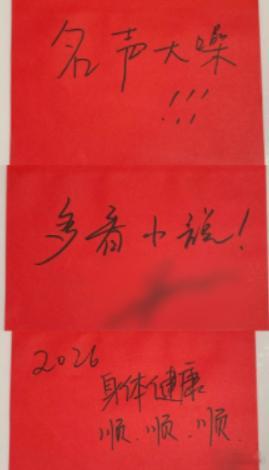 名声大噪
!!!
多看小说!
2026
身体健康
顺.顺.顺.